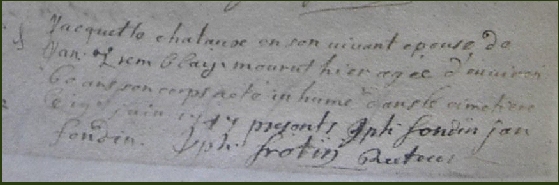 Jacquette chataux en son vivant epouse de
Jan mourut hier agée d'environ
60 ans son corps a eté inhumé dans le cimetiere
ce juin 1747 presents Jph: fondin jan
fondin. Jph: frotin Recteur